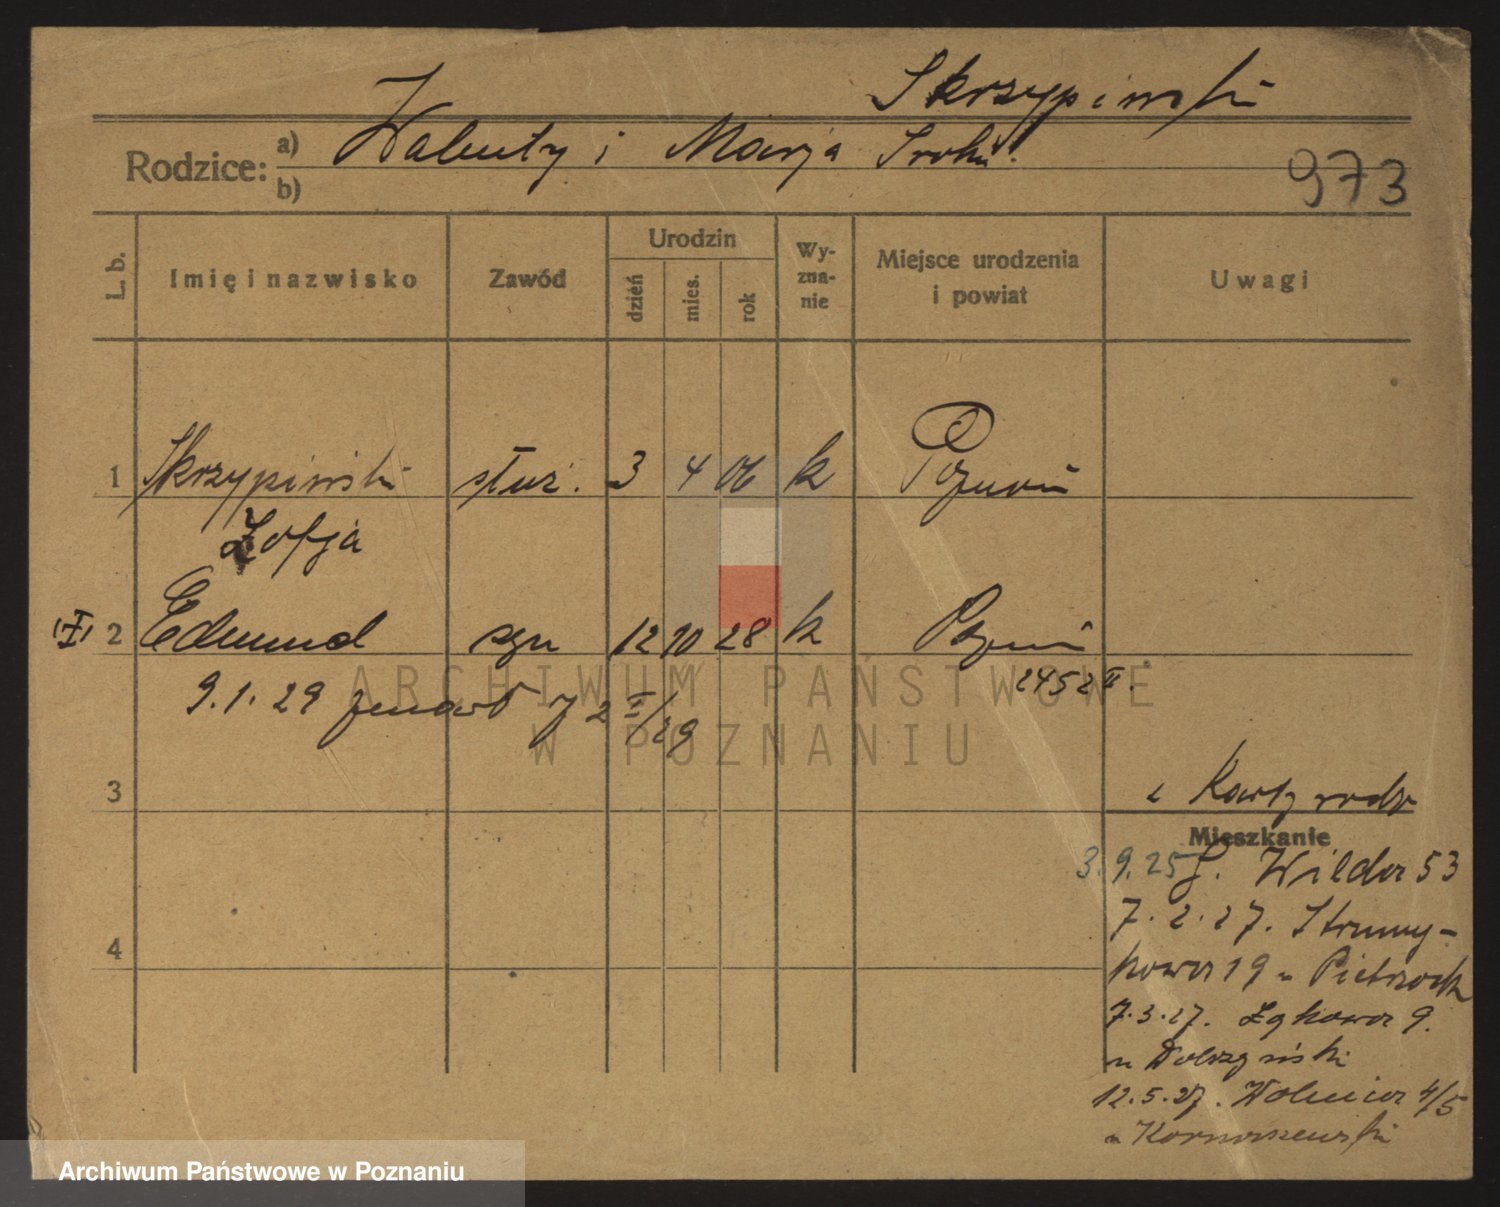 Skrzypiński
Rodzice: a) Walenty i Marja
b)
973
L. b. Imię i nazwisko Zawód Urodzin dzień mies. rok Wy-zna-nie Miejsce urodzenia i powiat Uwagi
1 Skrzypiński służ. 3 4 06 k Poznań
Zofja
(I) 2 Edmund syn 12 10 28 k Poznań
2452 II.
9.1.29 2 /29
3
z Karty rodz
Mieszkanie
3.9.25 G. Wilda 53
7.2.27. Strumy-
kowa 19 u Pietrzak
4
7.3.27. Łąkowa 9.
u
12.5.27. Wolnica 4/5
u Kornaszewski
ARCHIWUM PAŃSTWOWE
W POZNANIU
Archiwum Państwowe w Poznaniu